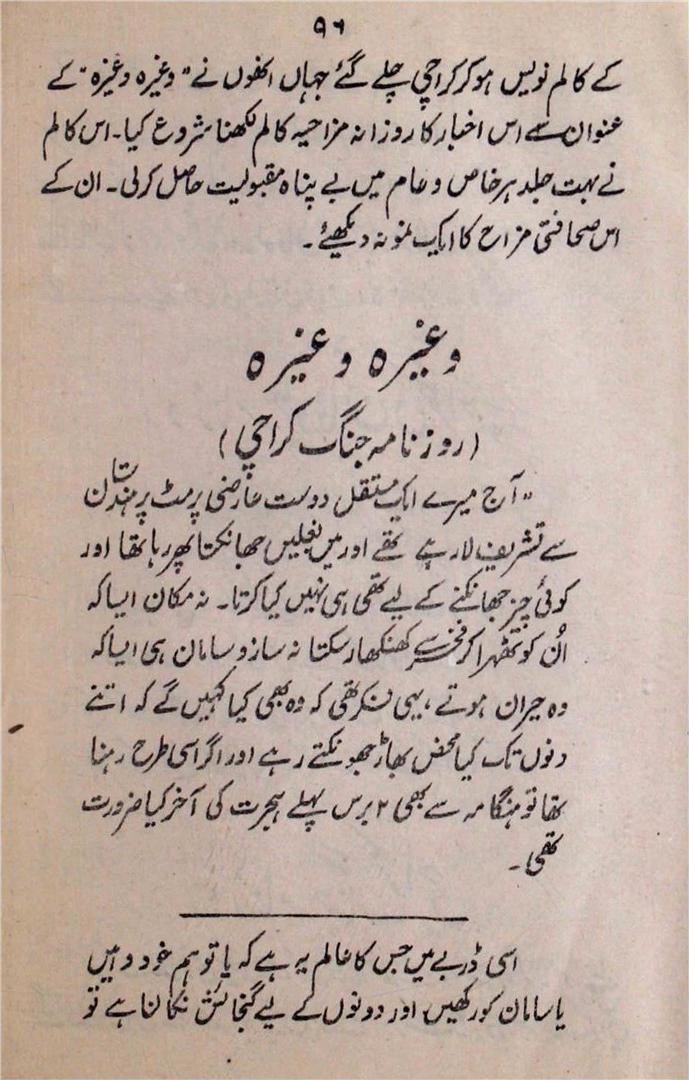 ۹۶
کے کالم نویس ہوکر کراچی چلے گئے جہاں انھوں نے "وغیرہ وغیرہ" کے
عنوان سے اس اخبار کا روزانہ مزاحیہ کالم لکھنا شروع کیا۔ اس کالم
نے بہت جلد ہر خاص و عام میں بے پناہ مقبولیت حاصل کرلی۔ ان کے
اس صحافتی مزاح کا ایک نمونہ دیکھئے۔
وغیرہ وغیرہ
(روزنامہ جنگ کراچی)
"آج میرے ایک مستقل دوست عارضی پرمٹ پر ہندستان
سے تشریف لارہے تھے اور میں بغلیں جھانکتا پھر رہا تھا اور
کوئی چیز جھانکنے کے لیے تھی ہی نہیں کیا کرتا۔ نہ مکان ایسا کہ
اُن کو ٹھہرا کر فخر سے کھنکھار سکتا نہ ساز و سامان ہی ایسا کہ
وہ حیران ہوتے، یہی فکر تھی کہ وہ بھی کیا کہیں گے کہ اتنے
دنوں تک کیا محض بھاڑ جھونکتے رہے اور اگر اسی طرح رہنا
تھا تو ہنگامہ سے بھی ۲ برس پہلے ہجرت کی آخر کیا ضرورت
تھی۔
اسی ڈربے میں جس کا عالم یہ ہے کہ یا تو ہم خود رہیں
یا سامان کو رکھیں اور دونوں کے لیے گنجائش نکالنا ہے تو